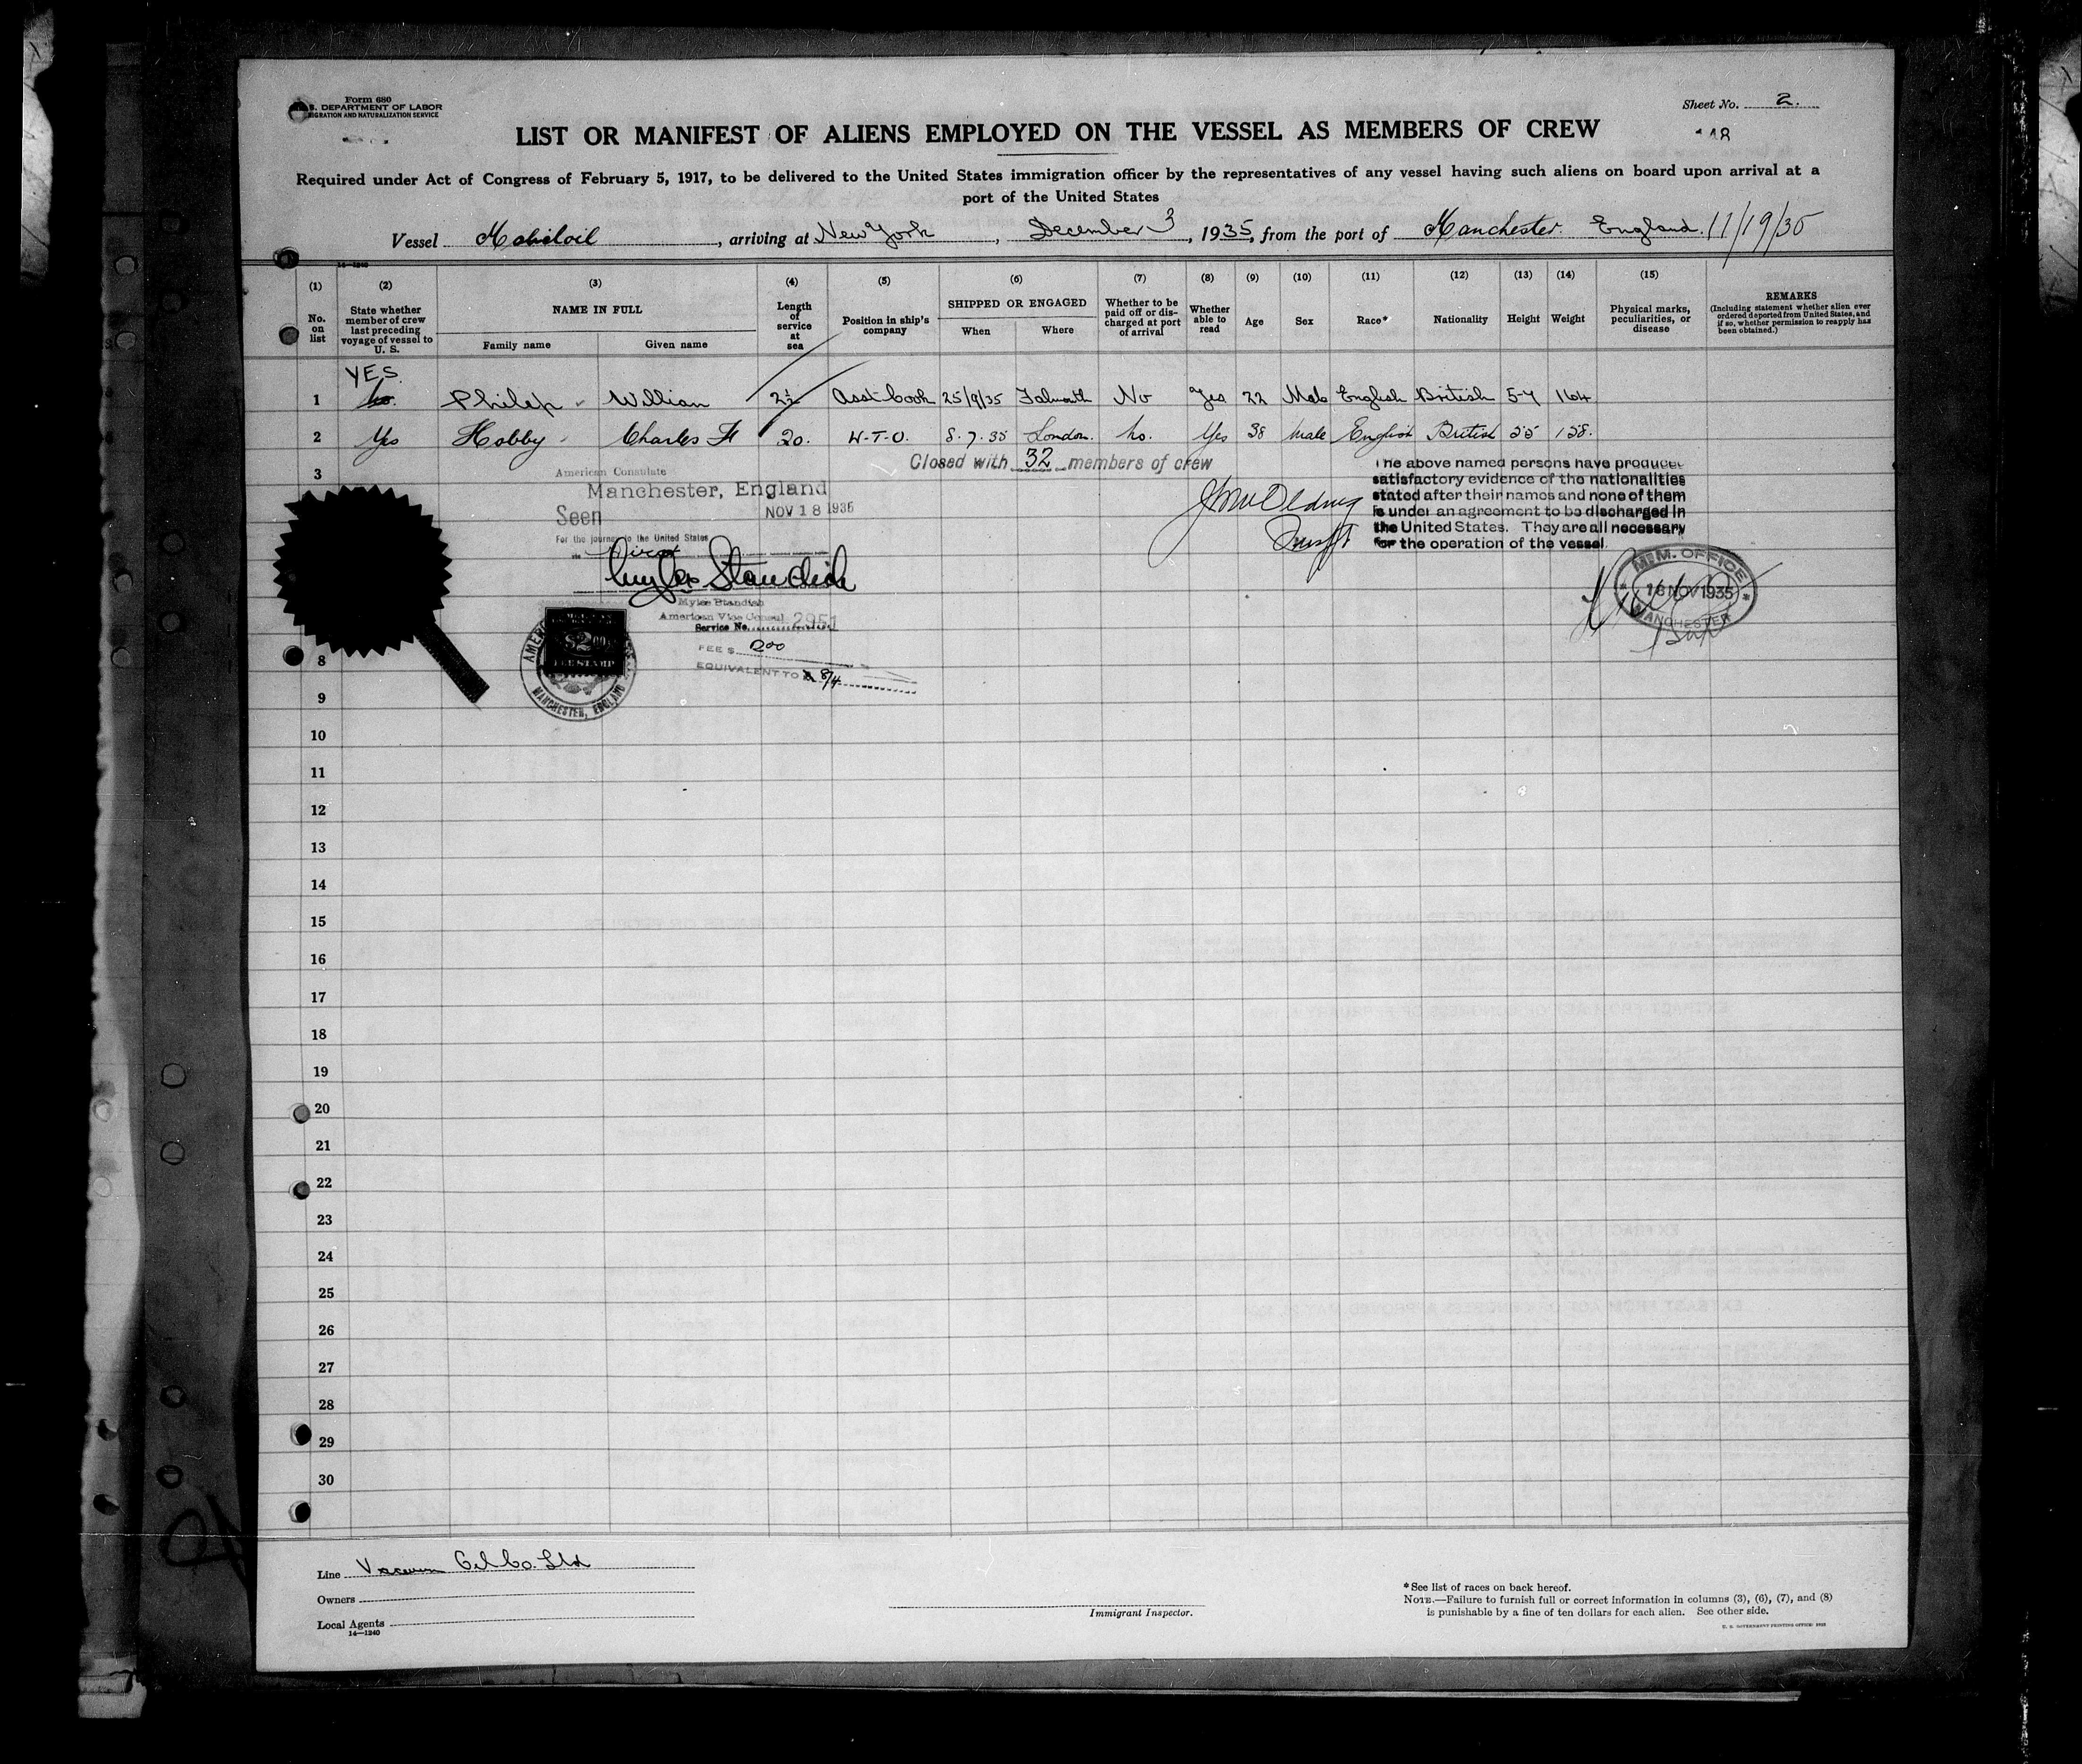 Form 680
S. DEPARTMENT OF LABOR
IGRATION AND NATURALIZATION SERVICE
Sheet No. 2.
LIST OR MANIFEST OF ALIENS EMPLOYED ON THE VESSEL AS MEMBERS OF CREW
Required under Act of Congress of February 5, 1917, to be delivered to the United States immigration officer by the representatives of any vessel having such aliens on board upon arrival at a
port of the United States
Vessel Mobiloil, arriving at New York, December 3, 1935, from the port of Manchester. England. 11/19/35
14—1240
(1) (2) (3) (4) (5) (6) (7) (8) (9) (10) (11) (12) (13) (14) (15)
No. on list
State whether member of crew last preceding voyage of vessel to U. S.
NAME IN FULL
Family name Given name
Length of service at sea
Position in ship's company
SHIPPED OR ENGAGED
When Where
Whether to be paid off or discharged at port of arrival
Whether able to read
Age
Sex
Race*
Nationality
Height
Weight
Physical marks, peculiarities, or disease
REMARKS
(Including statement whether alien ever ordered deported from United States, and if so, whether permission to reapply has been obtained.)
YES.
1 No. Philip William 2½ Asst Cook 25/9/35 Falmouth No Yes 22 Male English British 5-7 164
2 Yes Hobby Charles H 20. W-T-O. 8.7.35 London. No. Yes 38 Male English British 55 158.
3 Closed with 32 members of crew
American Consulate
Manchester, England
Seen NOV 18 1935
For the journey to the United States
via Direct
Myles Standish
Myles Standish
American Vice Consul
Service No. 2951
FEE $ 200
EQUIVALENT TO 8/4
$2.00
FEE STAMP
MANCHESTER, ENGLAND
The above named persons have produced
satisfactory evidence of the nationalities
stated after their names and none of them
is under an agreement to be discharged in
the United States. They are all necessary
for the operation of the vessel.
IMM. OFFICE
18 NOV 1935
MANCHESTER
8
9
10
11
12
13
14
15
16
17
18
19
20
21
22
23
24
25
26
27
28
29
30
Line Vacuum Oil Co. Ltd
Owners
Local Agents
14—1240
Immigrant Inspector.
*See list of races on back hereof.
NOTE.—Failure to furnish full or correct information in columns (3), (6), (7), and (8)
is punishable by a fine of ten dollars for each alien. See other side.